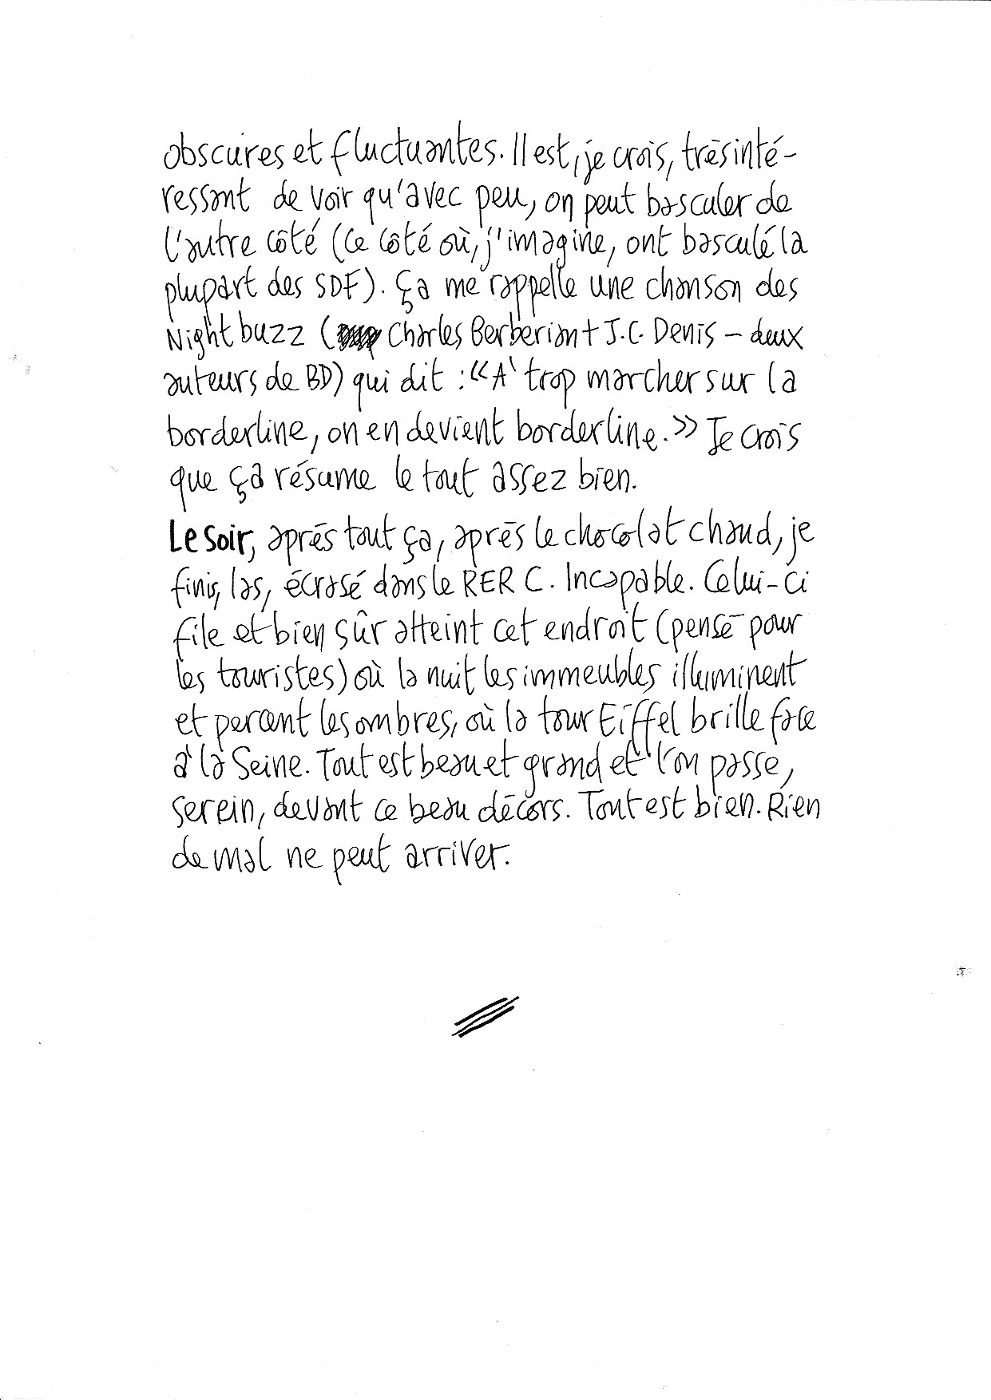 obscures et fluctuantes. Il est, je crois, très inté-
ressant de voir qu'avec peu, on peut basculer de
l'autre côté (ce côté où, j'imagine, ont basculé la
plupart des SDF). Ça me rappelle une chanson des
Nightbuzz (Charles Berberian + J.C. Denis – deux
auteurs de BD) qui dit : « À trop marcher sur la
borderline, on en devient borderline. » Je crois
que ça résume le tout assez bien.
Le soir, après tout ça, après le chocolat chaud, je
finis, las, écrasé dans le RER C. Incapable. Celui-ci
file et bien sûr atteint cet endroit (pensé pour
les touristes) où la nuit les immeubles illuminent
et percent les ombres, où la tour Eiffel brille face
à la Seine. Tout est beau et grand et l'on passe,
serein, devant ce beau décors. Tout est bien. Rien
de mal ne peut arriver.